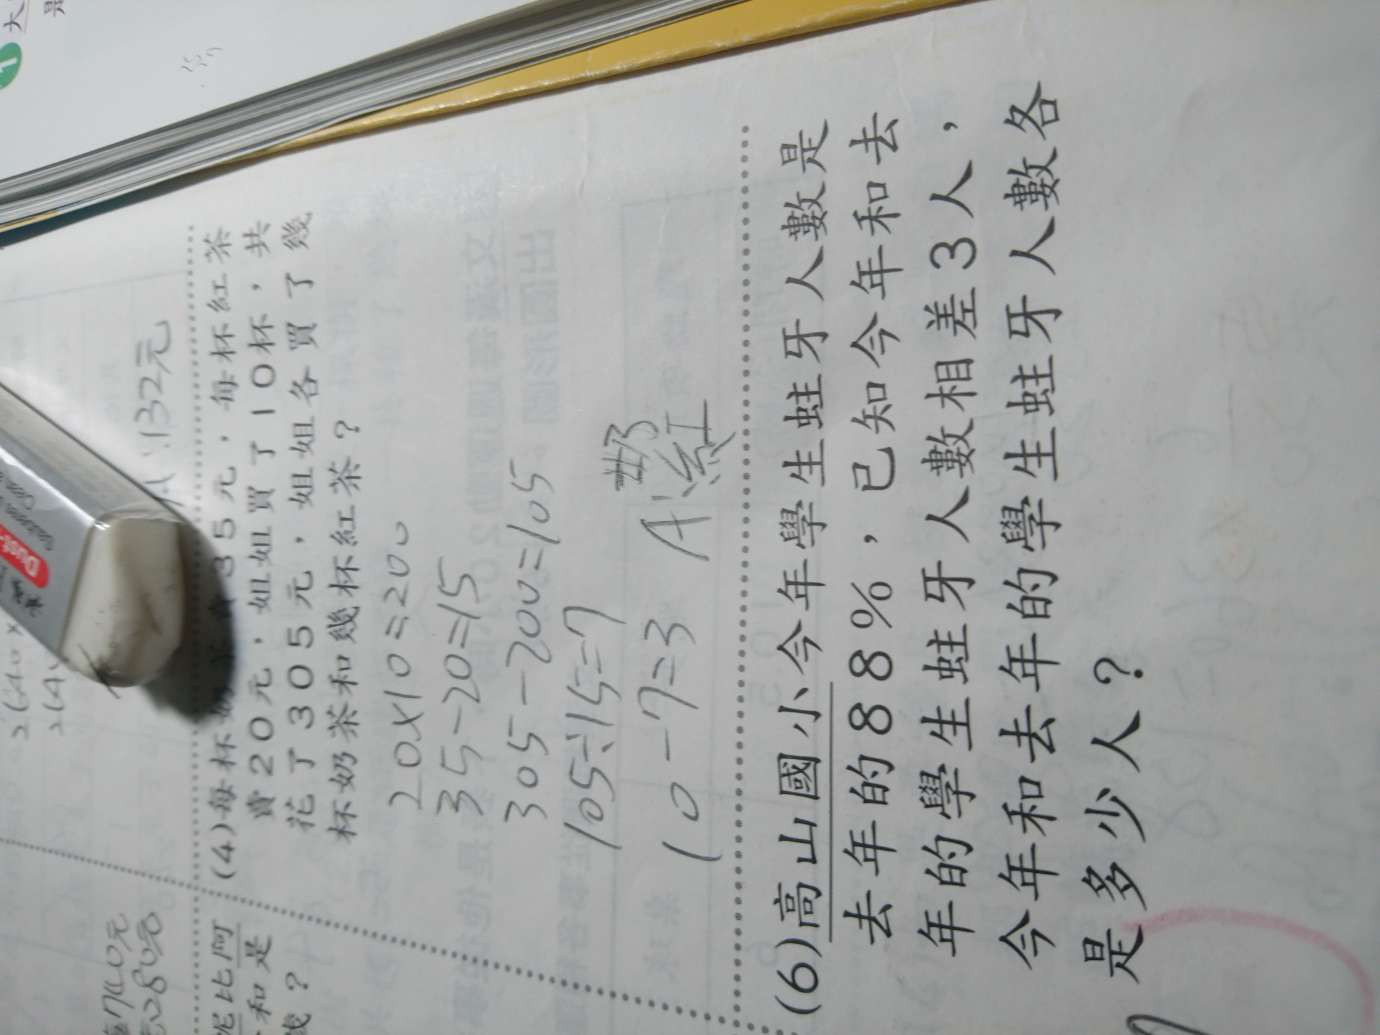 1
大
是
132元
(4)每杯
35元,每杯紅茶
賣20元,姐姐買了10杯,共
花了305元,姐姐各買了幾
杯奶茶和幾杯紅茶?
20×10=200
35-20=15
305-200=105
105÷15=7
10-7=3
A:紅
(6)高山國小今年學生蛀牙人數是
去年的88%,已知今年和去
年的學生蛀牙人數相差3人,
今年和去年的學生蛀牙人數各
是多少人?
比阿
和是
幾?
280元
Dust